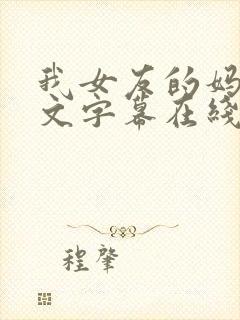 我女友的妈
文字幕在线
程肇